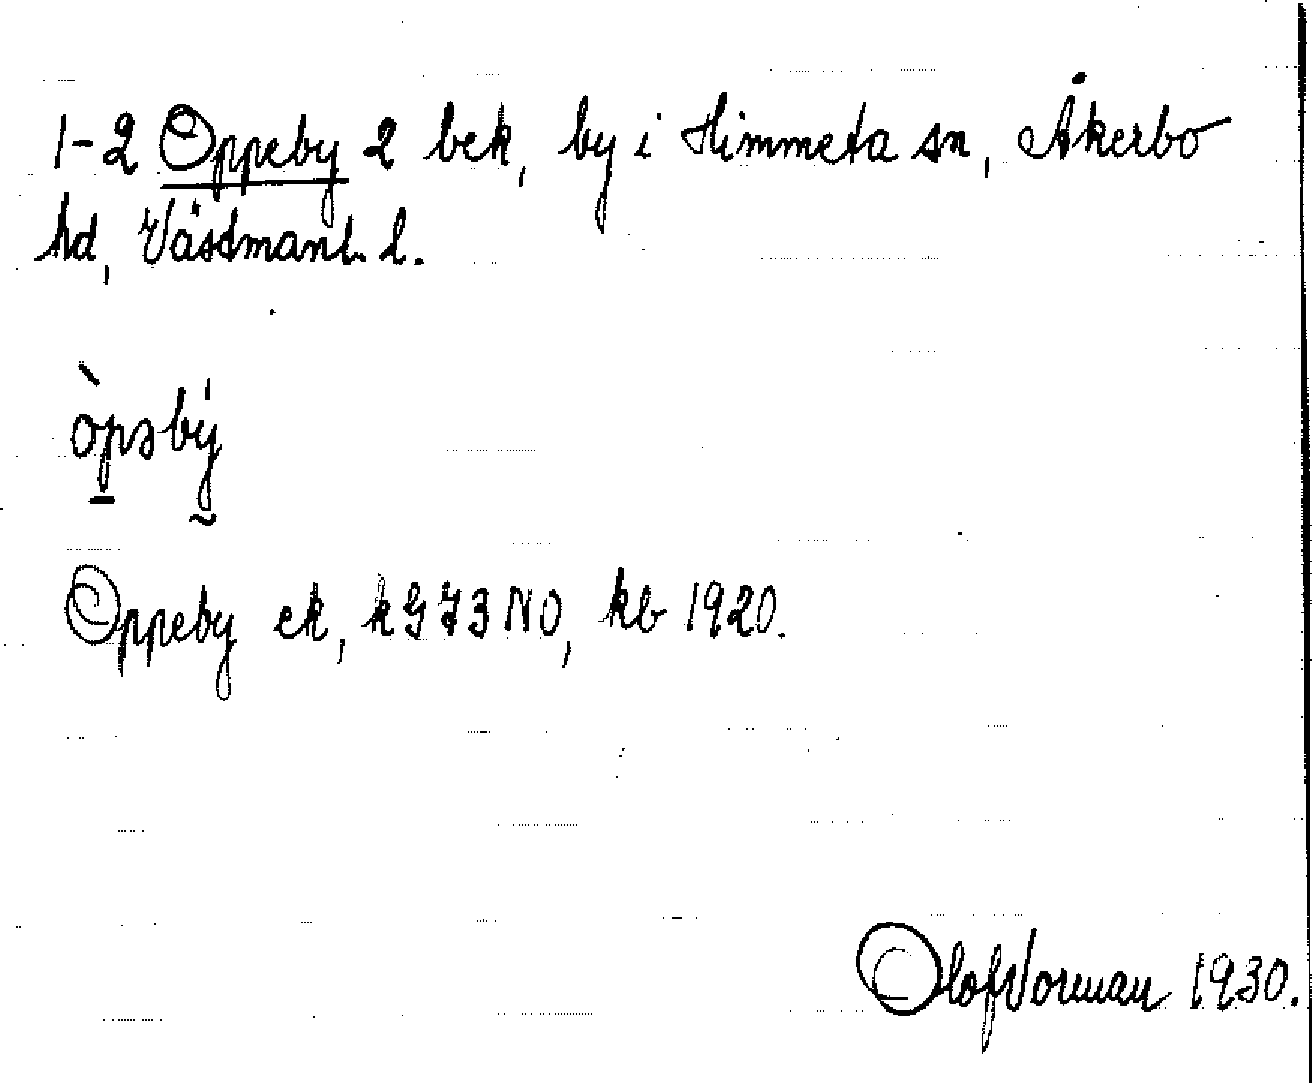 1-2 Oppeby 2 bek, by i Himmeta sn, Åkerbo
hd, Västmanl. l.
òpəbý
Oppeby ek, k G 73 NO, kb 1920.
Olof Vorman 1930.